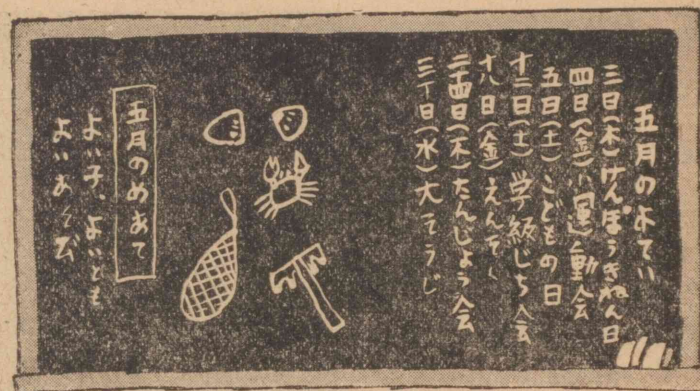 五月のよてい
三日(木)けんぽうきねん日
四日(金)小運動会
五日(土)こどもの日
十二日(土)学級じち会
十八日(金)えんそく
二十四日(木)たんじょう会
三十日(水)大そうじ
五月のめあて
よい子、よいとも
よいあそび